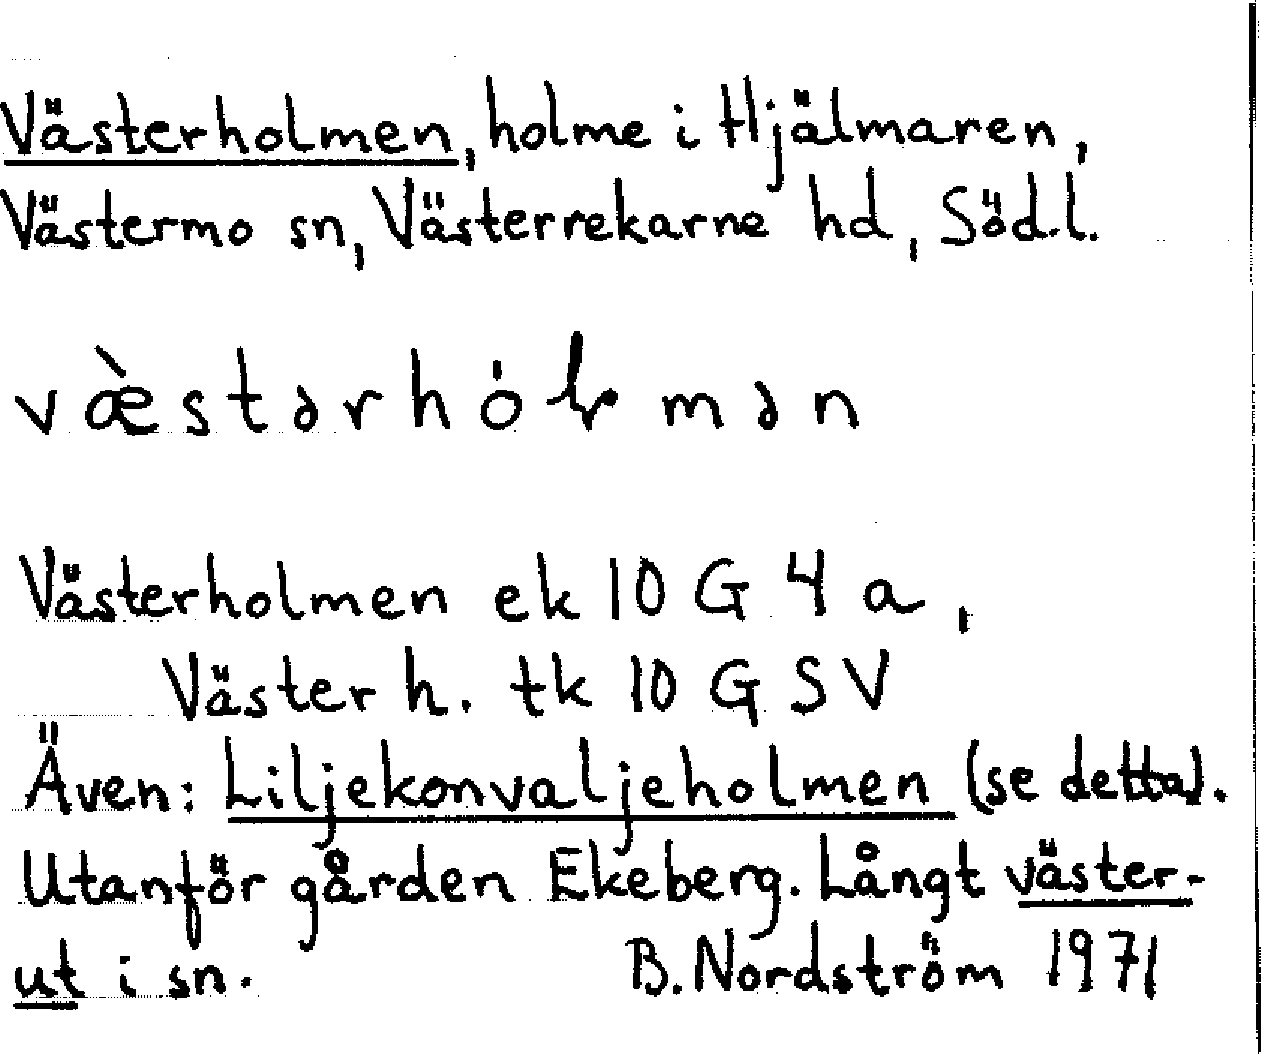 Västerholmen, holme i Hjälmaren,
Västermo sn, Västerrekarne hd, Söd.l.
Västerholmen ek 10 G 4 a,
Väster h. tk 10 G SV
Även: Liljekonvaljeholmen (se detta).
Utanför gården Ekeberg. Långt väster-
ut i sn. B. Nordström 1971